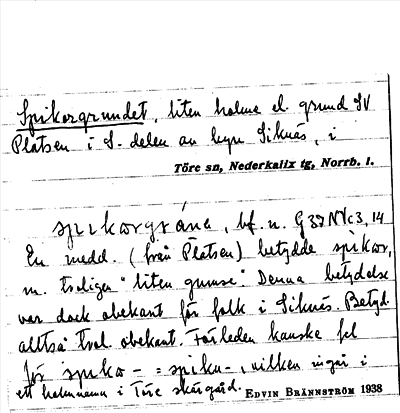 Spikorgrundet, liten holme el. grund SV
Platsen i S. delen av byn Siknäs, i
Töre sn, Nederkalix tg, Norrb. l.
spikorgråna, bf. n. G37 NYc3, 14
En medd. (från Platsen) betydde spikor,
m. troligen "liten gumse". Denna betydelse
var dock obekant för folk i Siknäs. Betyd.
alltså trol. obekant. Förleden kanske fel
för spiko- = spiku-, vilken ingår i
ett holmnamn i Töre skärgård. EDVIN BRÄNNSTRÖM 1938